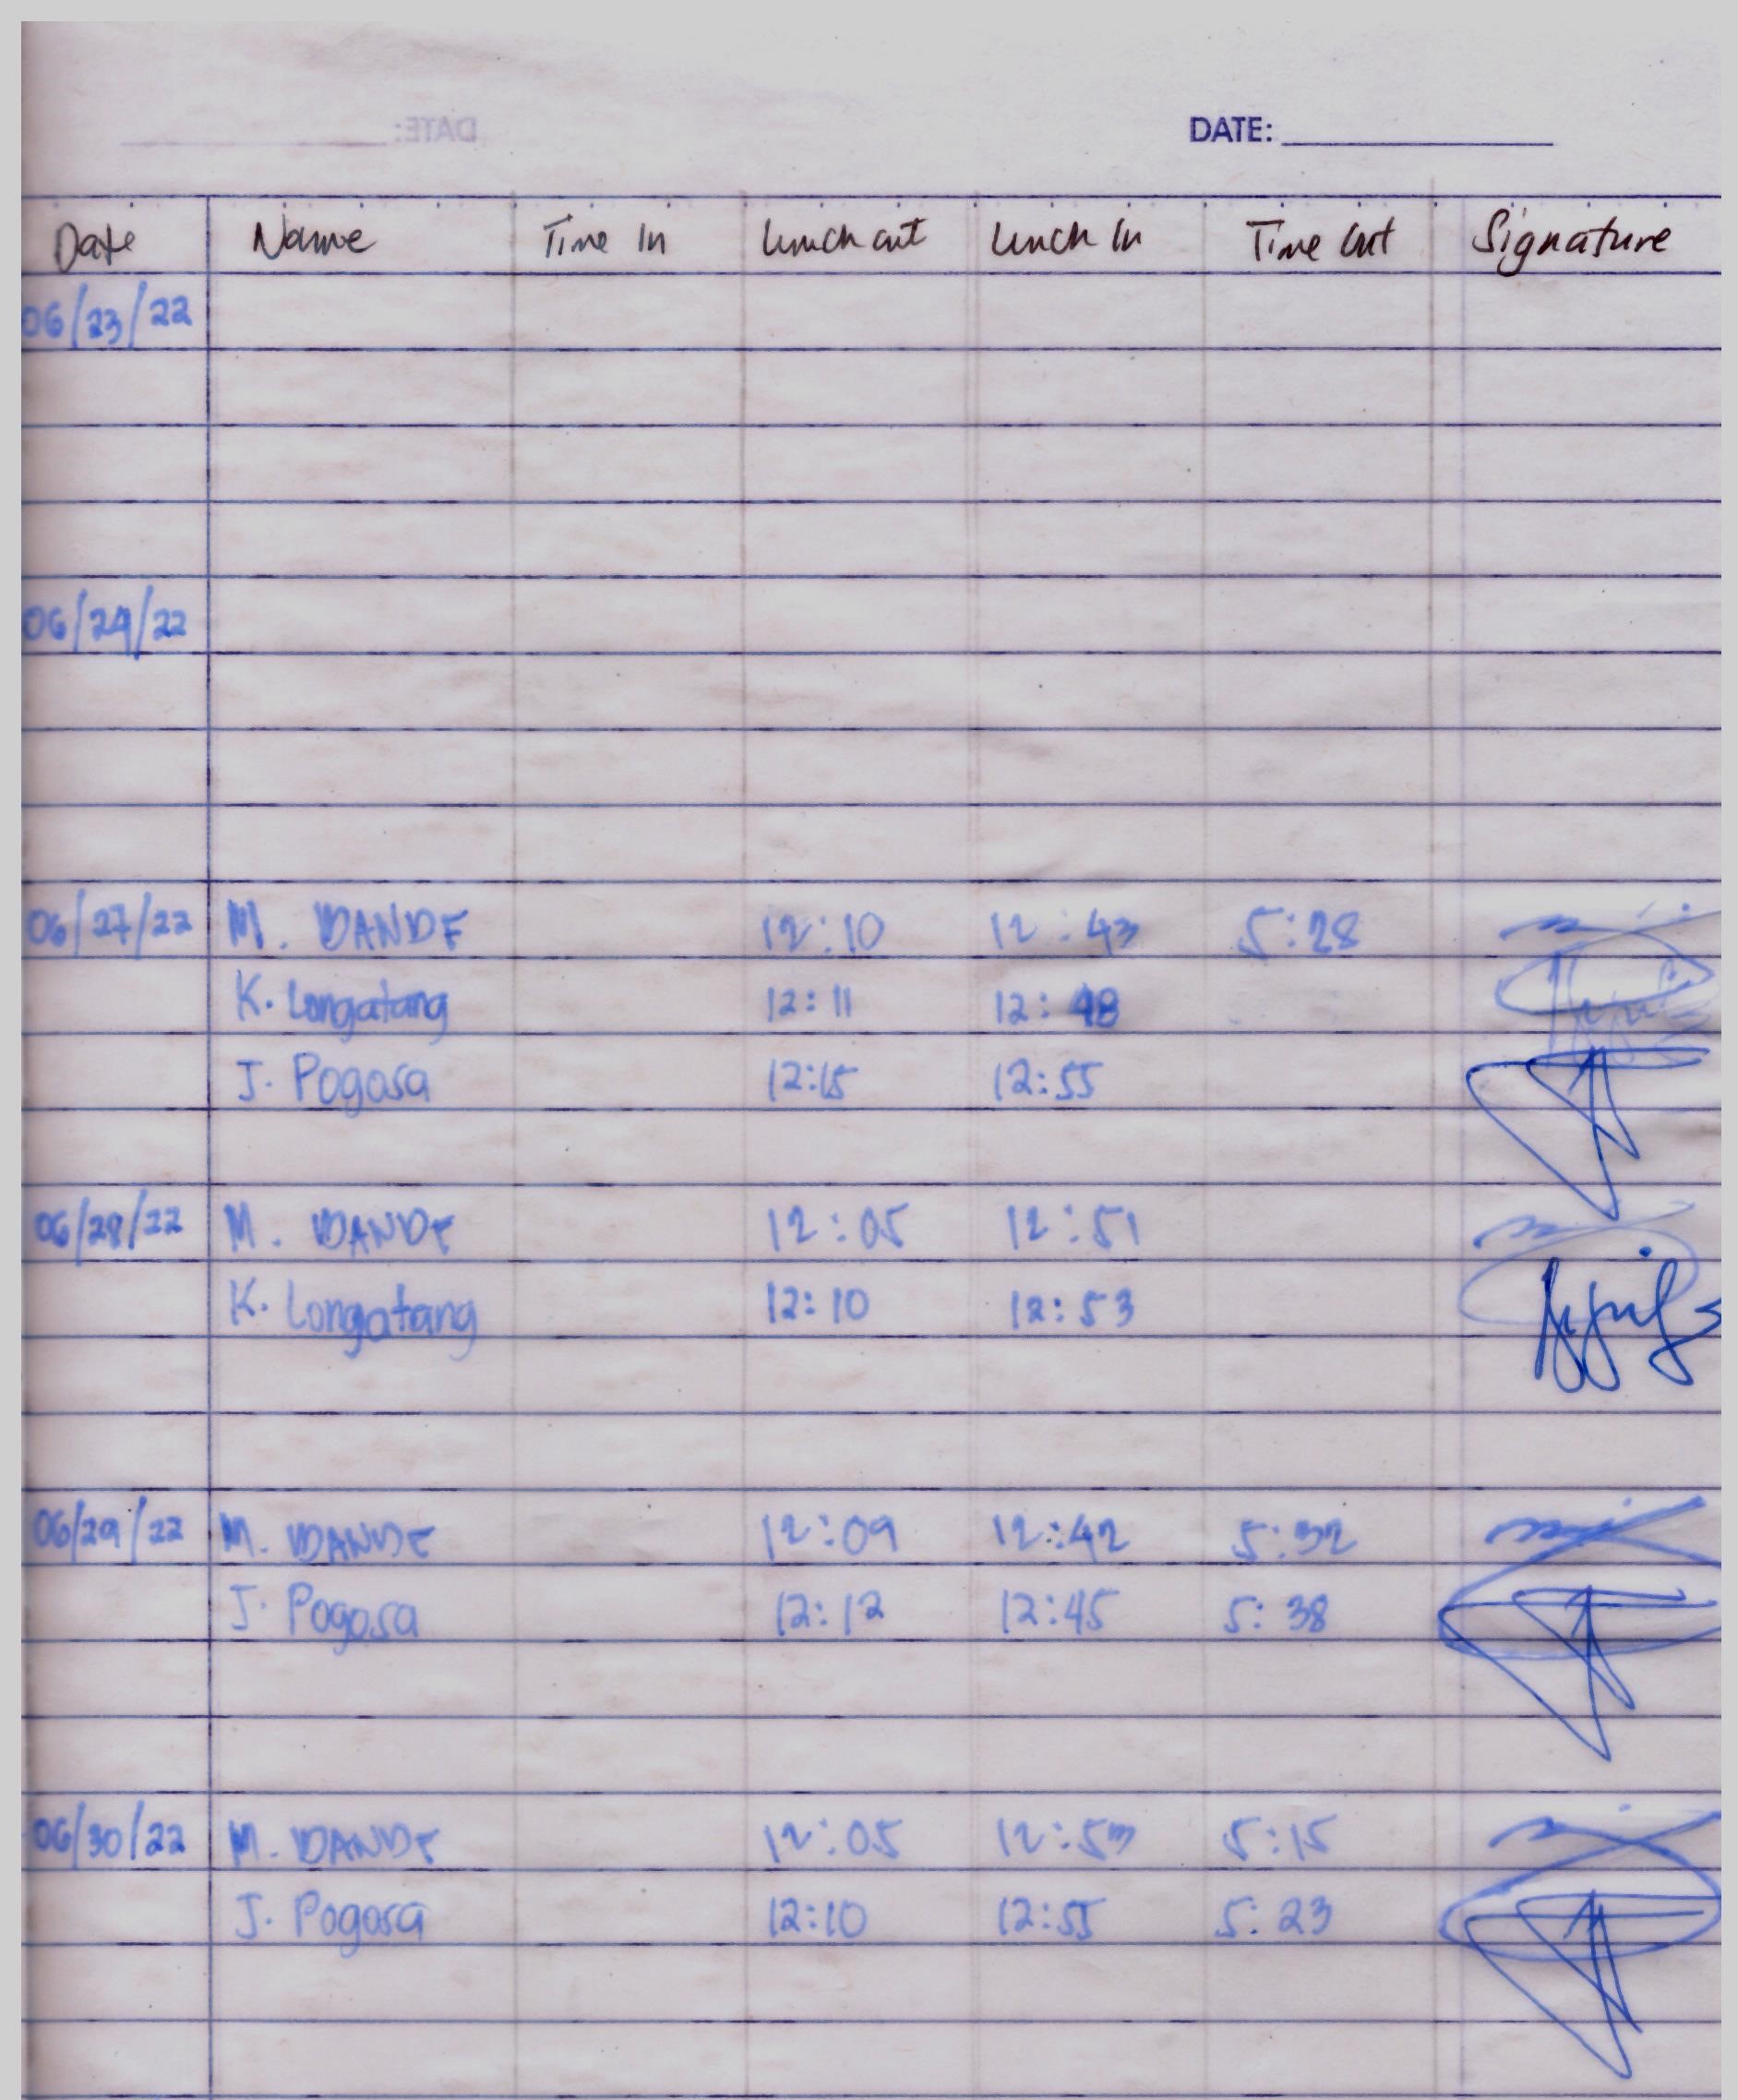 DATE:
Date Name Time In Lunch out Lunch In Time Out Signature
06/23/22
06/24/22
06/27/22 M. IDANDE 12:10 12:43 5:28
K. Longatang 12:11 12:48
J. Pogosa 12:15 12:55
06/28/22 M. IDANDE 12:05 12:51
K. Longatang 12:10 12:53
06/29/22 M. IDANDE 12:09 12:42 5:32
J. Pogosa 12:12 12:45 5:38
06/30/22 M. IDANDE 12:05 12:53 5:15
J. Pogosa 12:10 12:55 5:23